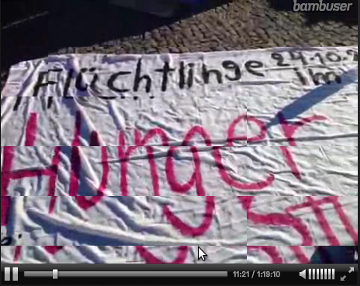 bambuser
Flüchtlinge 24.10.
im
Hunger
11:21 / 1:19:10